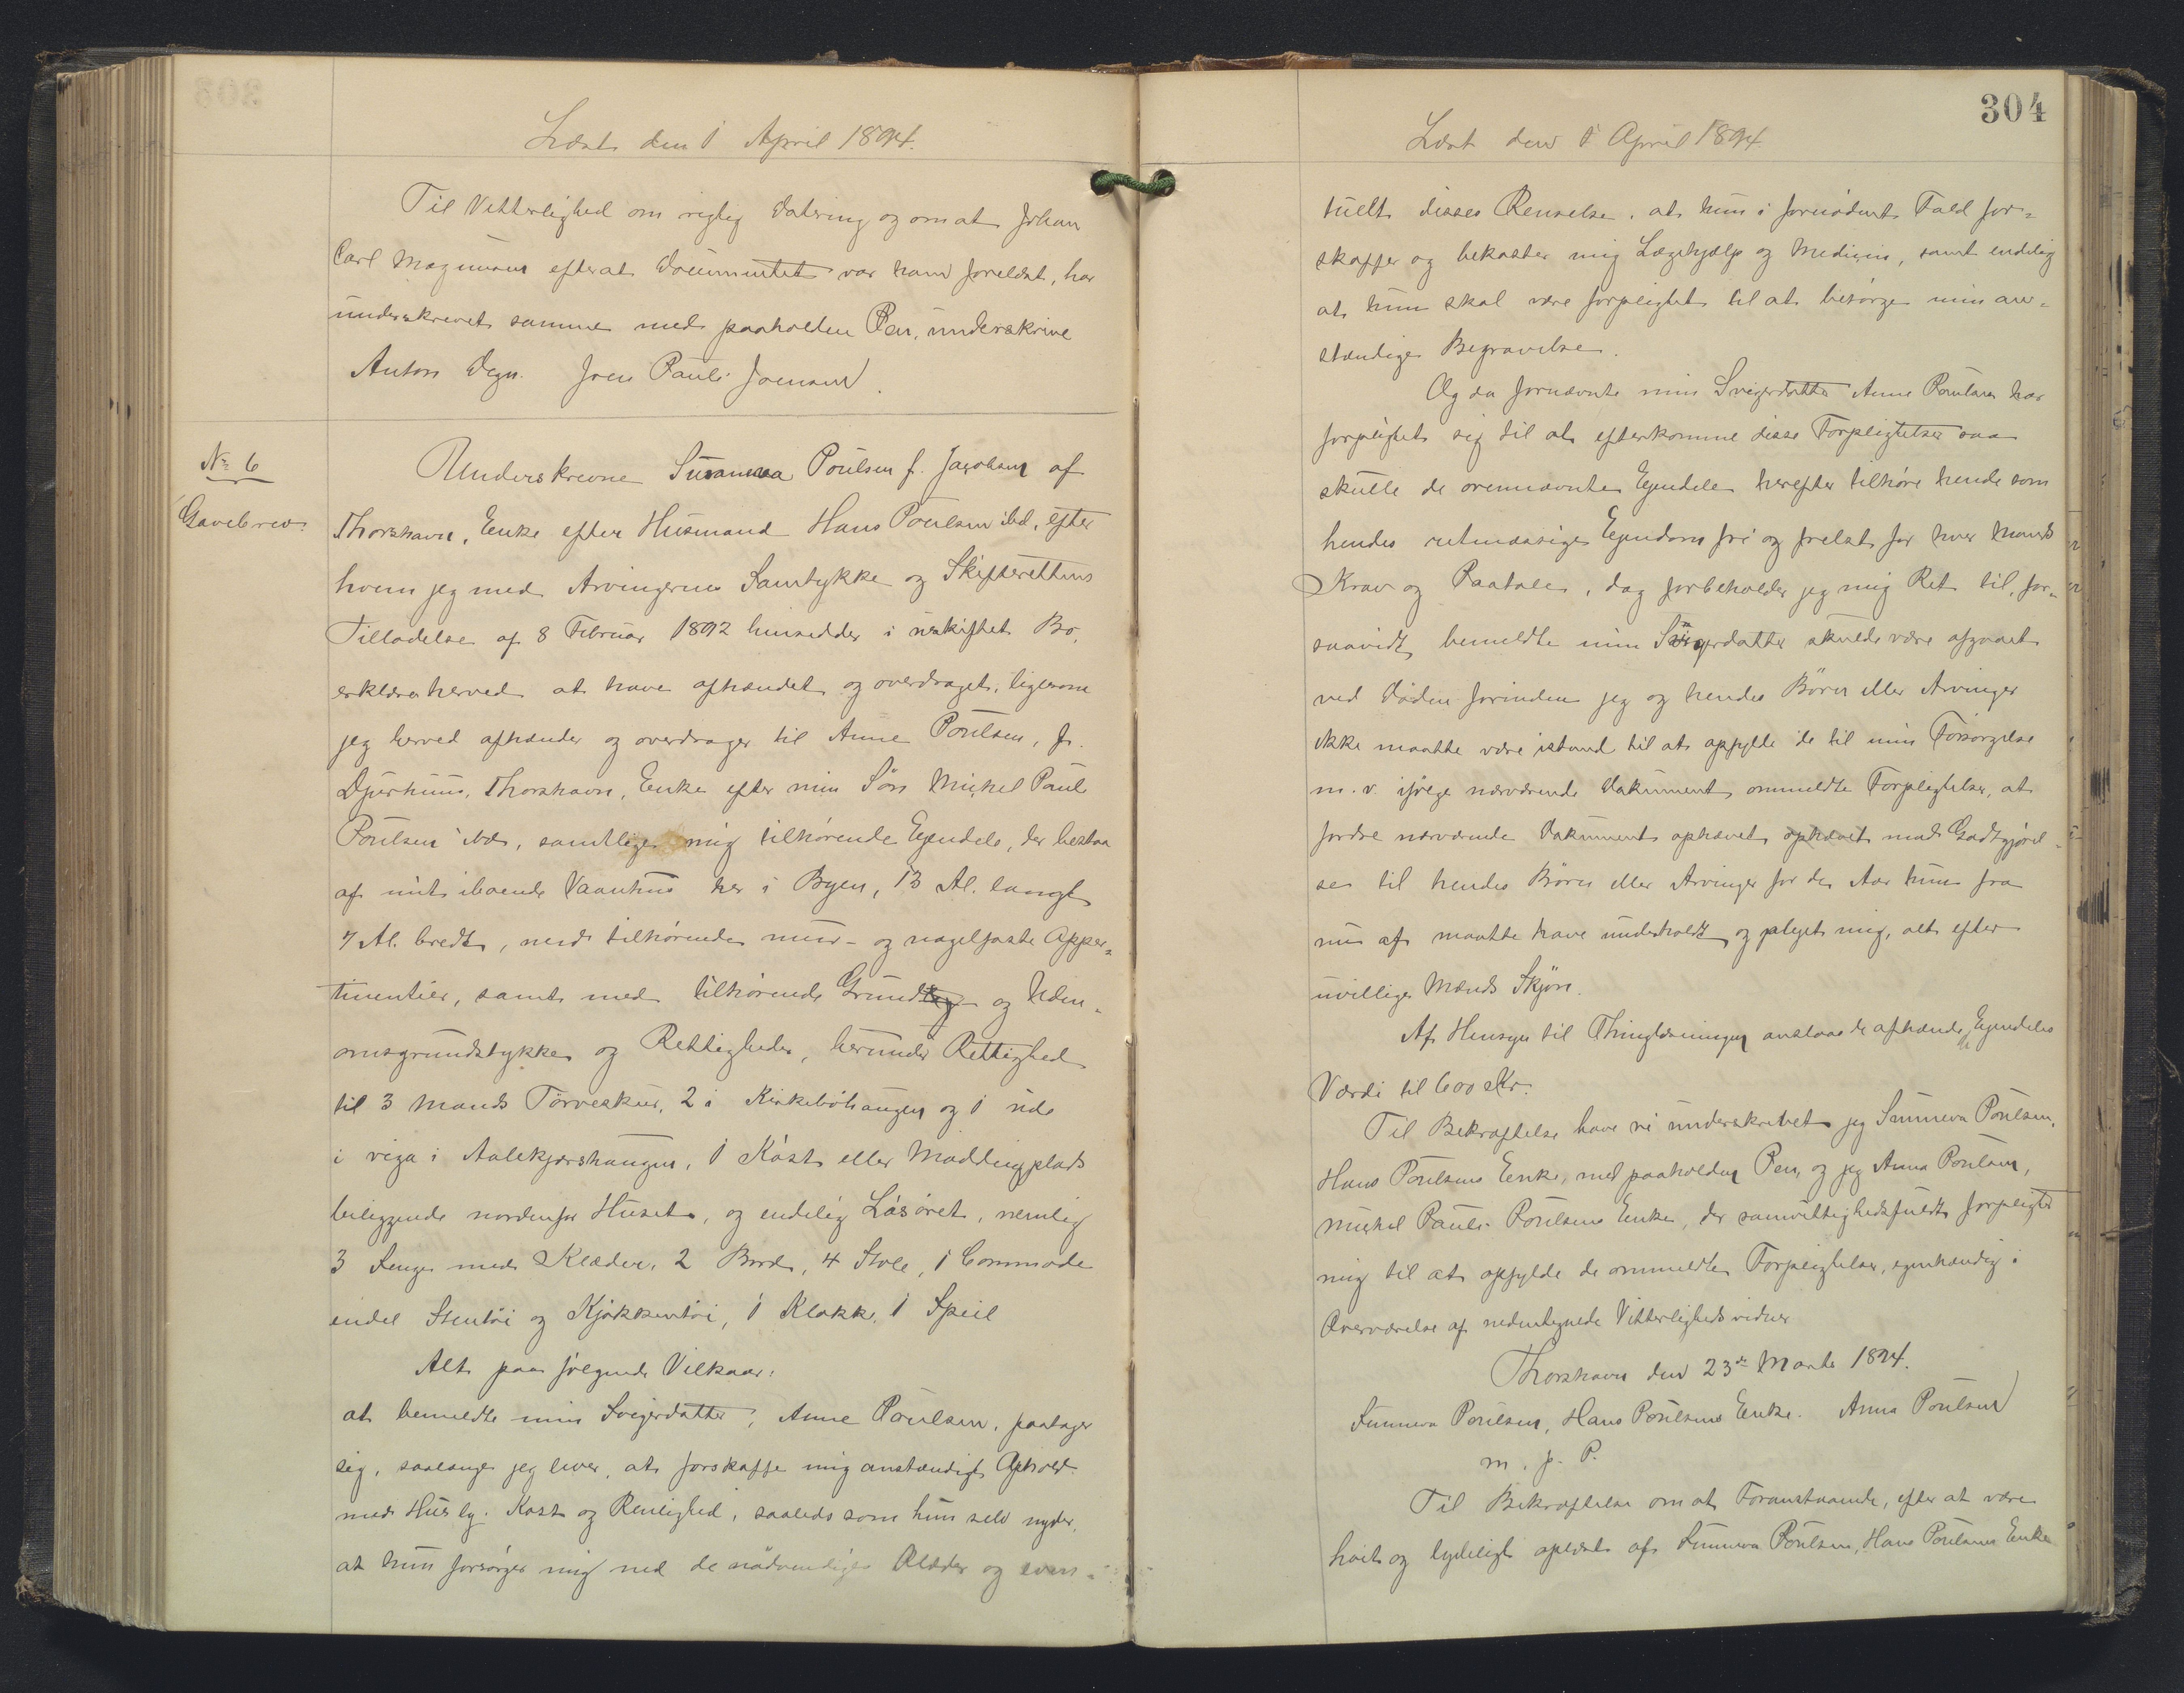 Læst den 1 April 1894.
Til Vitterlighed om rigtig Datering og om at Johan
Carl Magnussen efter at Documentet var ham forelæst, har
underskrevet samme med paaholden Pen, underskrive
Anton Degn. Joen Pauli Joensen.
No 6
Gavebrev.
Underskrevne Susanna Poulsen f. Jacobsen af
Thorshavn, Enke efter Husmand Hans Poulsen ibd, efter
hvem jeg med Arvingernes Samtykke og Skifterettens
Tilladelse af 8 Februar 1892 hensidder i uskiftet Bo,
erklærer herved at have afhændet og overdraget, ligesom
jeg herved afhænder og overdrager til Anne Poulsen, f.
Djurhuus, Thorshavn, Enke efter min Søn Michel Pauli
Poulsen ibd, samtlige mig tilhørende Ejendele, der bestaa
af mit iboende Vaanhus her i Byen, 13 Al. langt
7 Al. bredt, med tilhørende mur- og nagelfaste Apper-
tinentier, samt med tilhørende Grund og Uden-
omsgrundstykke og Rettigheder, herunder Rettighed
til 3 Mands Tørveskur, 2 i Kirkebøhaugen og 1 ude
i viga i Aalekjærshaugen, 1 Kást eller Møddingplads
beliggende nordenfor Huset, og endelig Løsøret, nemlig
3 Senge med Klæder, 2 Borde, 4 Stole, 1 Commode
endel Stentøi og Kjøkkentøi, 1 Klokke, 1 Speil
Alt paa følgende Vilkaar:
at bemeldte min Svigerdatter, Anne Poulsen, paatager
sig, saalænge jeg lever, at forskaffe mig anstændigt Ophold
med Husly, Kost og Renlighed, saaledes som hun selv nyder,
at hun forsørger mig med de nødvendige Klæder og even-
304
Læst den 1 April 1894.
tuelt disses Renselse, at hun i fornødent Fald for-
skaffer og bekoster mig Lægehjælp og Medicin, samt endelig
at hun skal være forpligtet til at besørge min an-
stændige Begravelse.
Og da fornævnte min Svigerdatter Anne Poulsen har
forpligtet sig til at efterkomme disse Forpligtelser saa
skulle de ovennævnte Ejendele herefter tilhøre hende som
hendes retmæssige Ejendom fri og frelst for hver Mands
Krav og Paatale, dog forbeholder jeg mig Ret til, for-
saavidt bemeldte min Svigerdatter skulde være afgaaet
ved Døden forinden jeg og hendes Børn eller Arvinger
ikke maatte være istand til at opfylde de til min Forsørgelse
m. v. ifølge nærværende Dokument ommeldte Forpligtelser, at
fordre nærværende Dokument ophævet ophævet mod Godtgjørel-
se til hendes Børn eller Arvinger for de Aar hun fra
nu af maatte have underholdt og pleget mig, alt efter
uvillige Mænds Skjøn.
Af Hensyn til Thinglæsningen anslaas de afhændede Ejendeles
Værdi til 600 Kr.
Til Bekræftelse have vi underskrevet jeg Sunneva Poulsen,
Hans Poulsens Enke, med paaholden Pen, og jeg Anna Poulsen,
Michel Pauli Poulsens Enke, der samvittighedsfuldt forpligter
mig til at opfylde de ommeldte Forpligtelser, egenhændig i
Overværelse af nedentegnede Vitterlighedsvidner
Thorshavn den 23de Marts 1894.
Sunneva Poulsen, Hans Poulsens Enke. Anna Poulsen
m. p. P.
Til Bekræftelse om at Foranstaaende, efter at være
høit og tydeligt oplæst af Sunneva Poulsen, Hans Poulsens Enke